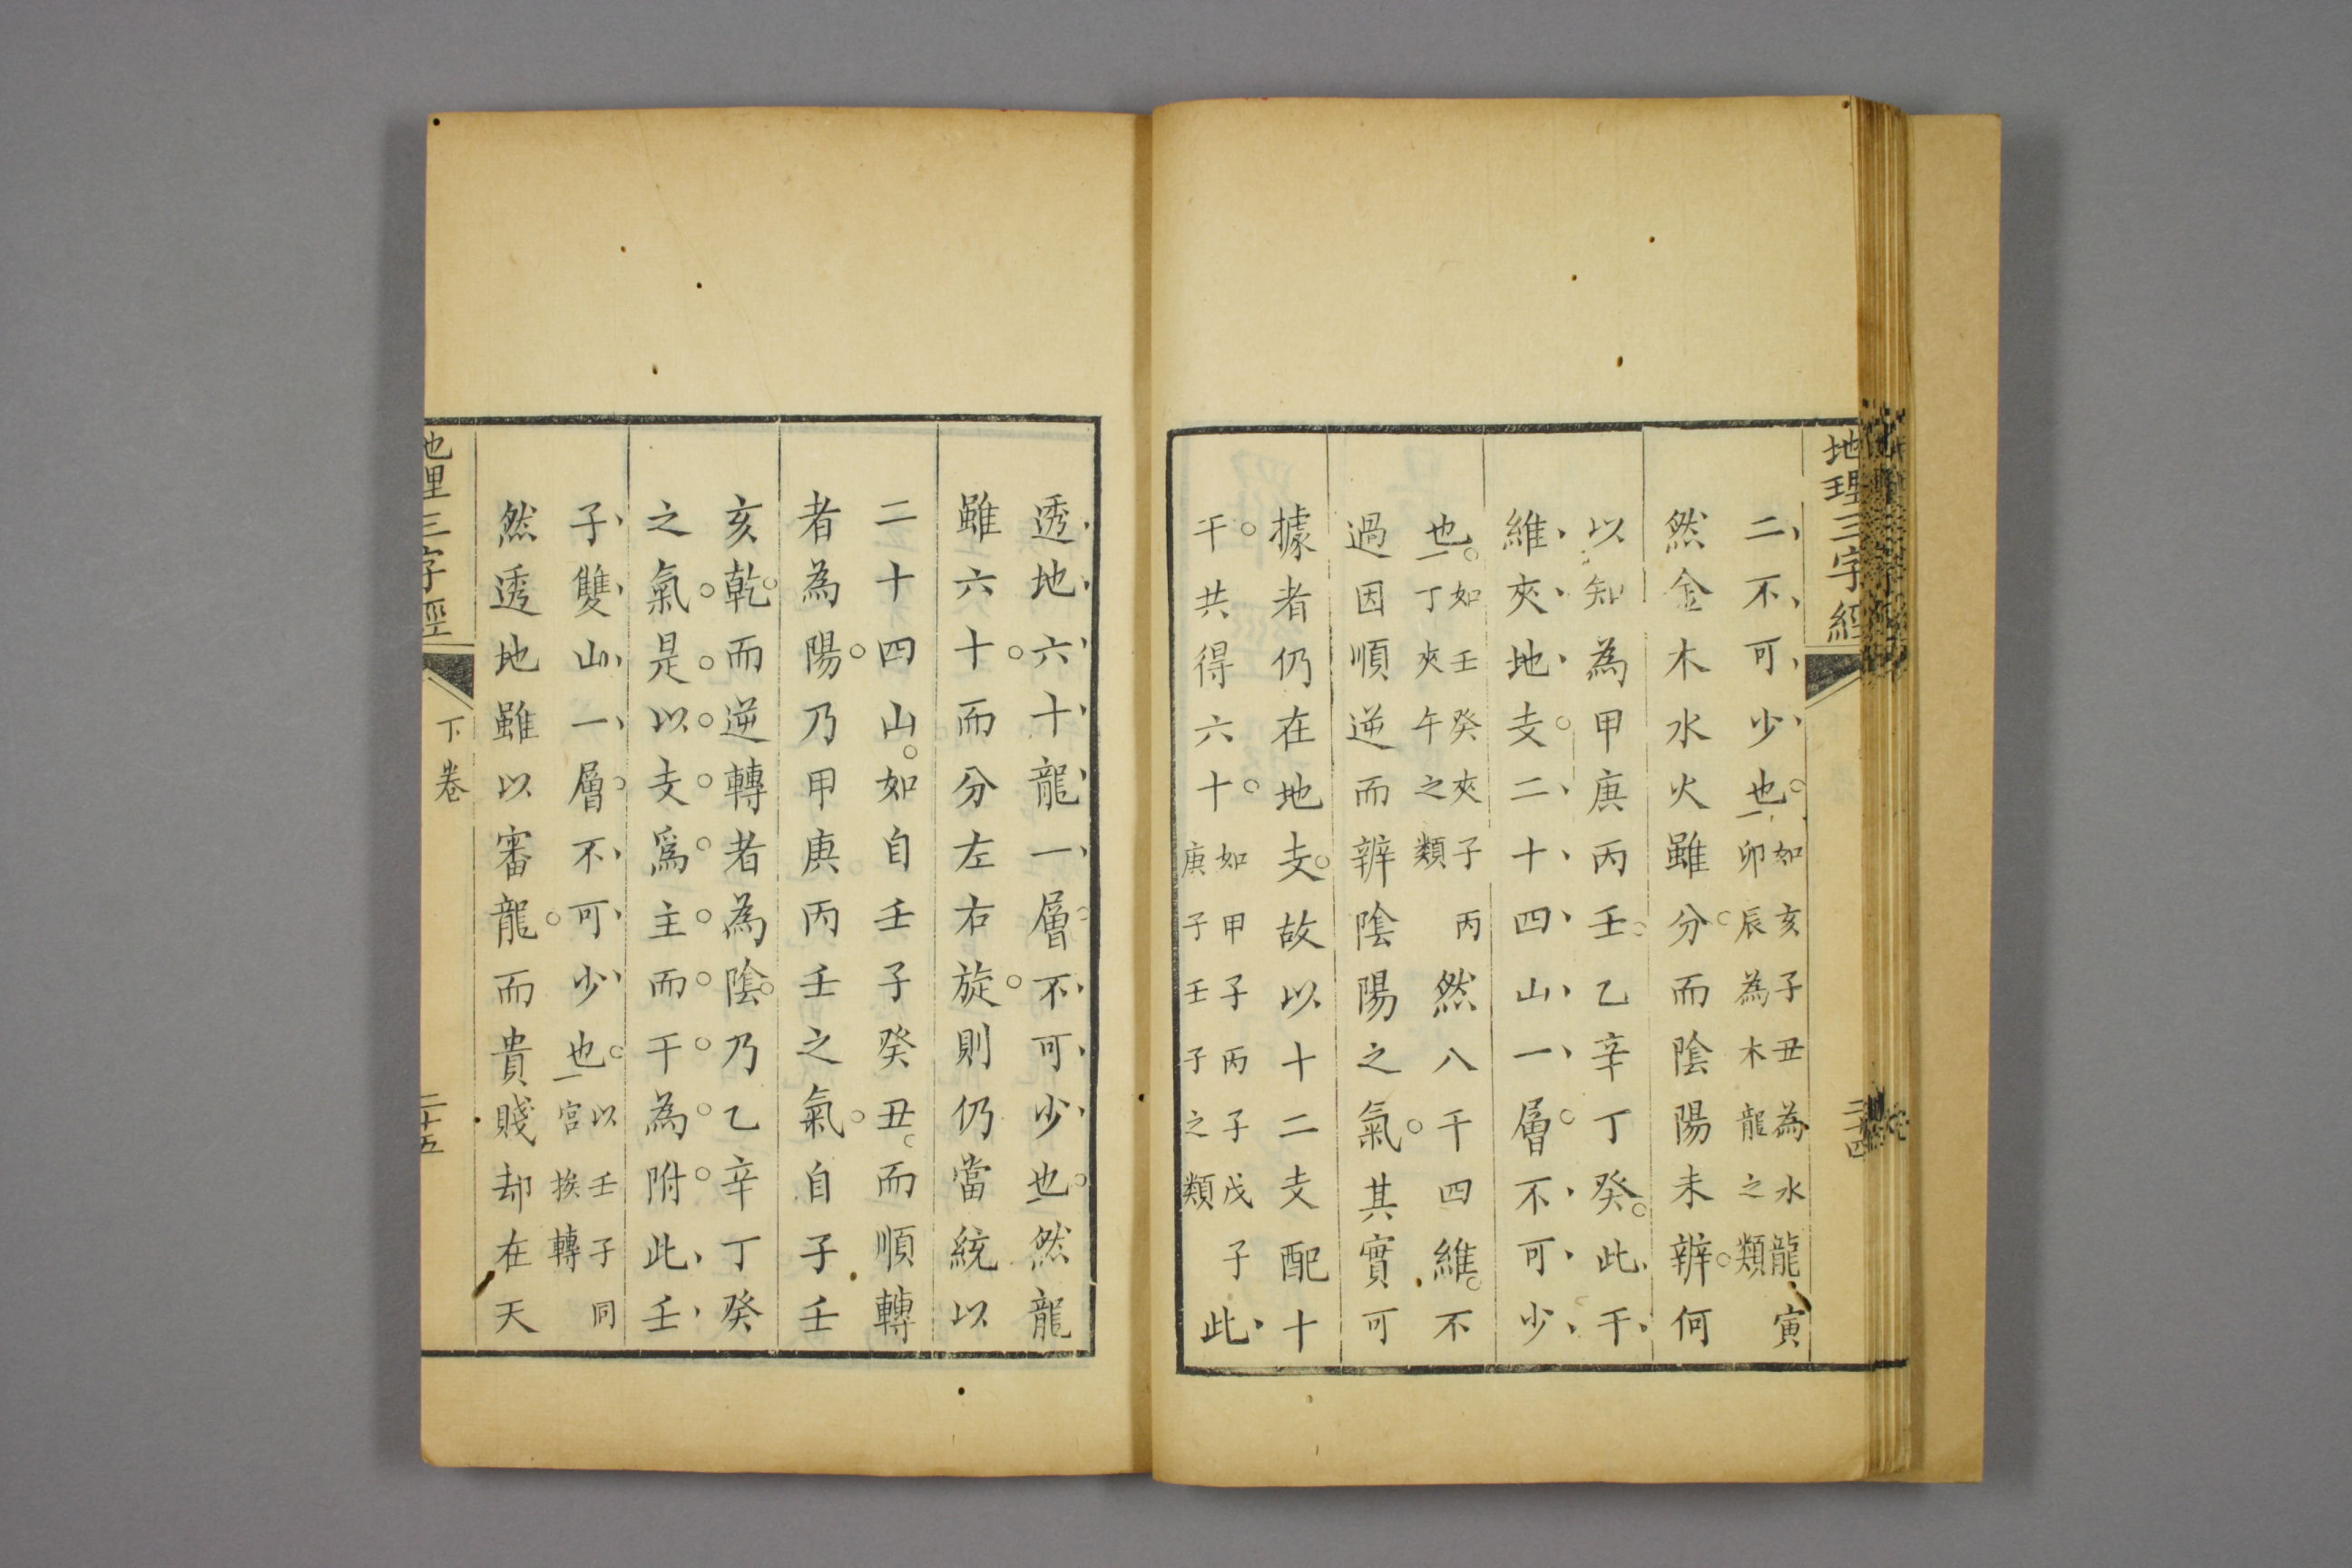 地理三字經
二不可少也如亥子丑為水龍寅卯辰為木龍之類
然金木水火雖分而陰陽未辨何
以知為甲庚丙壬乙辛丁癸此干
維夾地支二十四山一層不可少
也如壬癸夾子丙丁夾午之類然八干四維不
過因順逆而辨陰陽之氣其實可
據者仍在地支故以十二支配十
干共得六十如甲子丙子戊子庚子壬子之類此
透地六十龍一層不可少也然龍
雖六十而分左右旋則仍當統以
二十四山如自壬子癸丑而順轉
者為陽乃甲庚丙壬之氣自子壬
亥乾而逆轉者為陰乃乙辛丁癸
之氣是以支為主而干為附此壬
子雙山一層不可少也以壬子同一宮挨轉
然透地雖以審龍而貴賤却在天
地理三字經
下卷
二十五